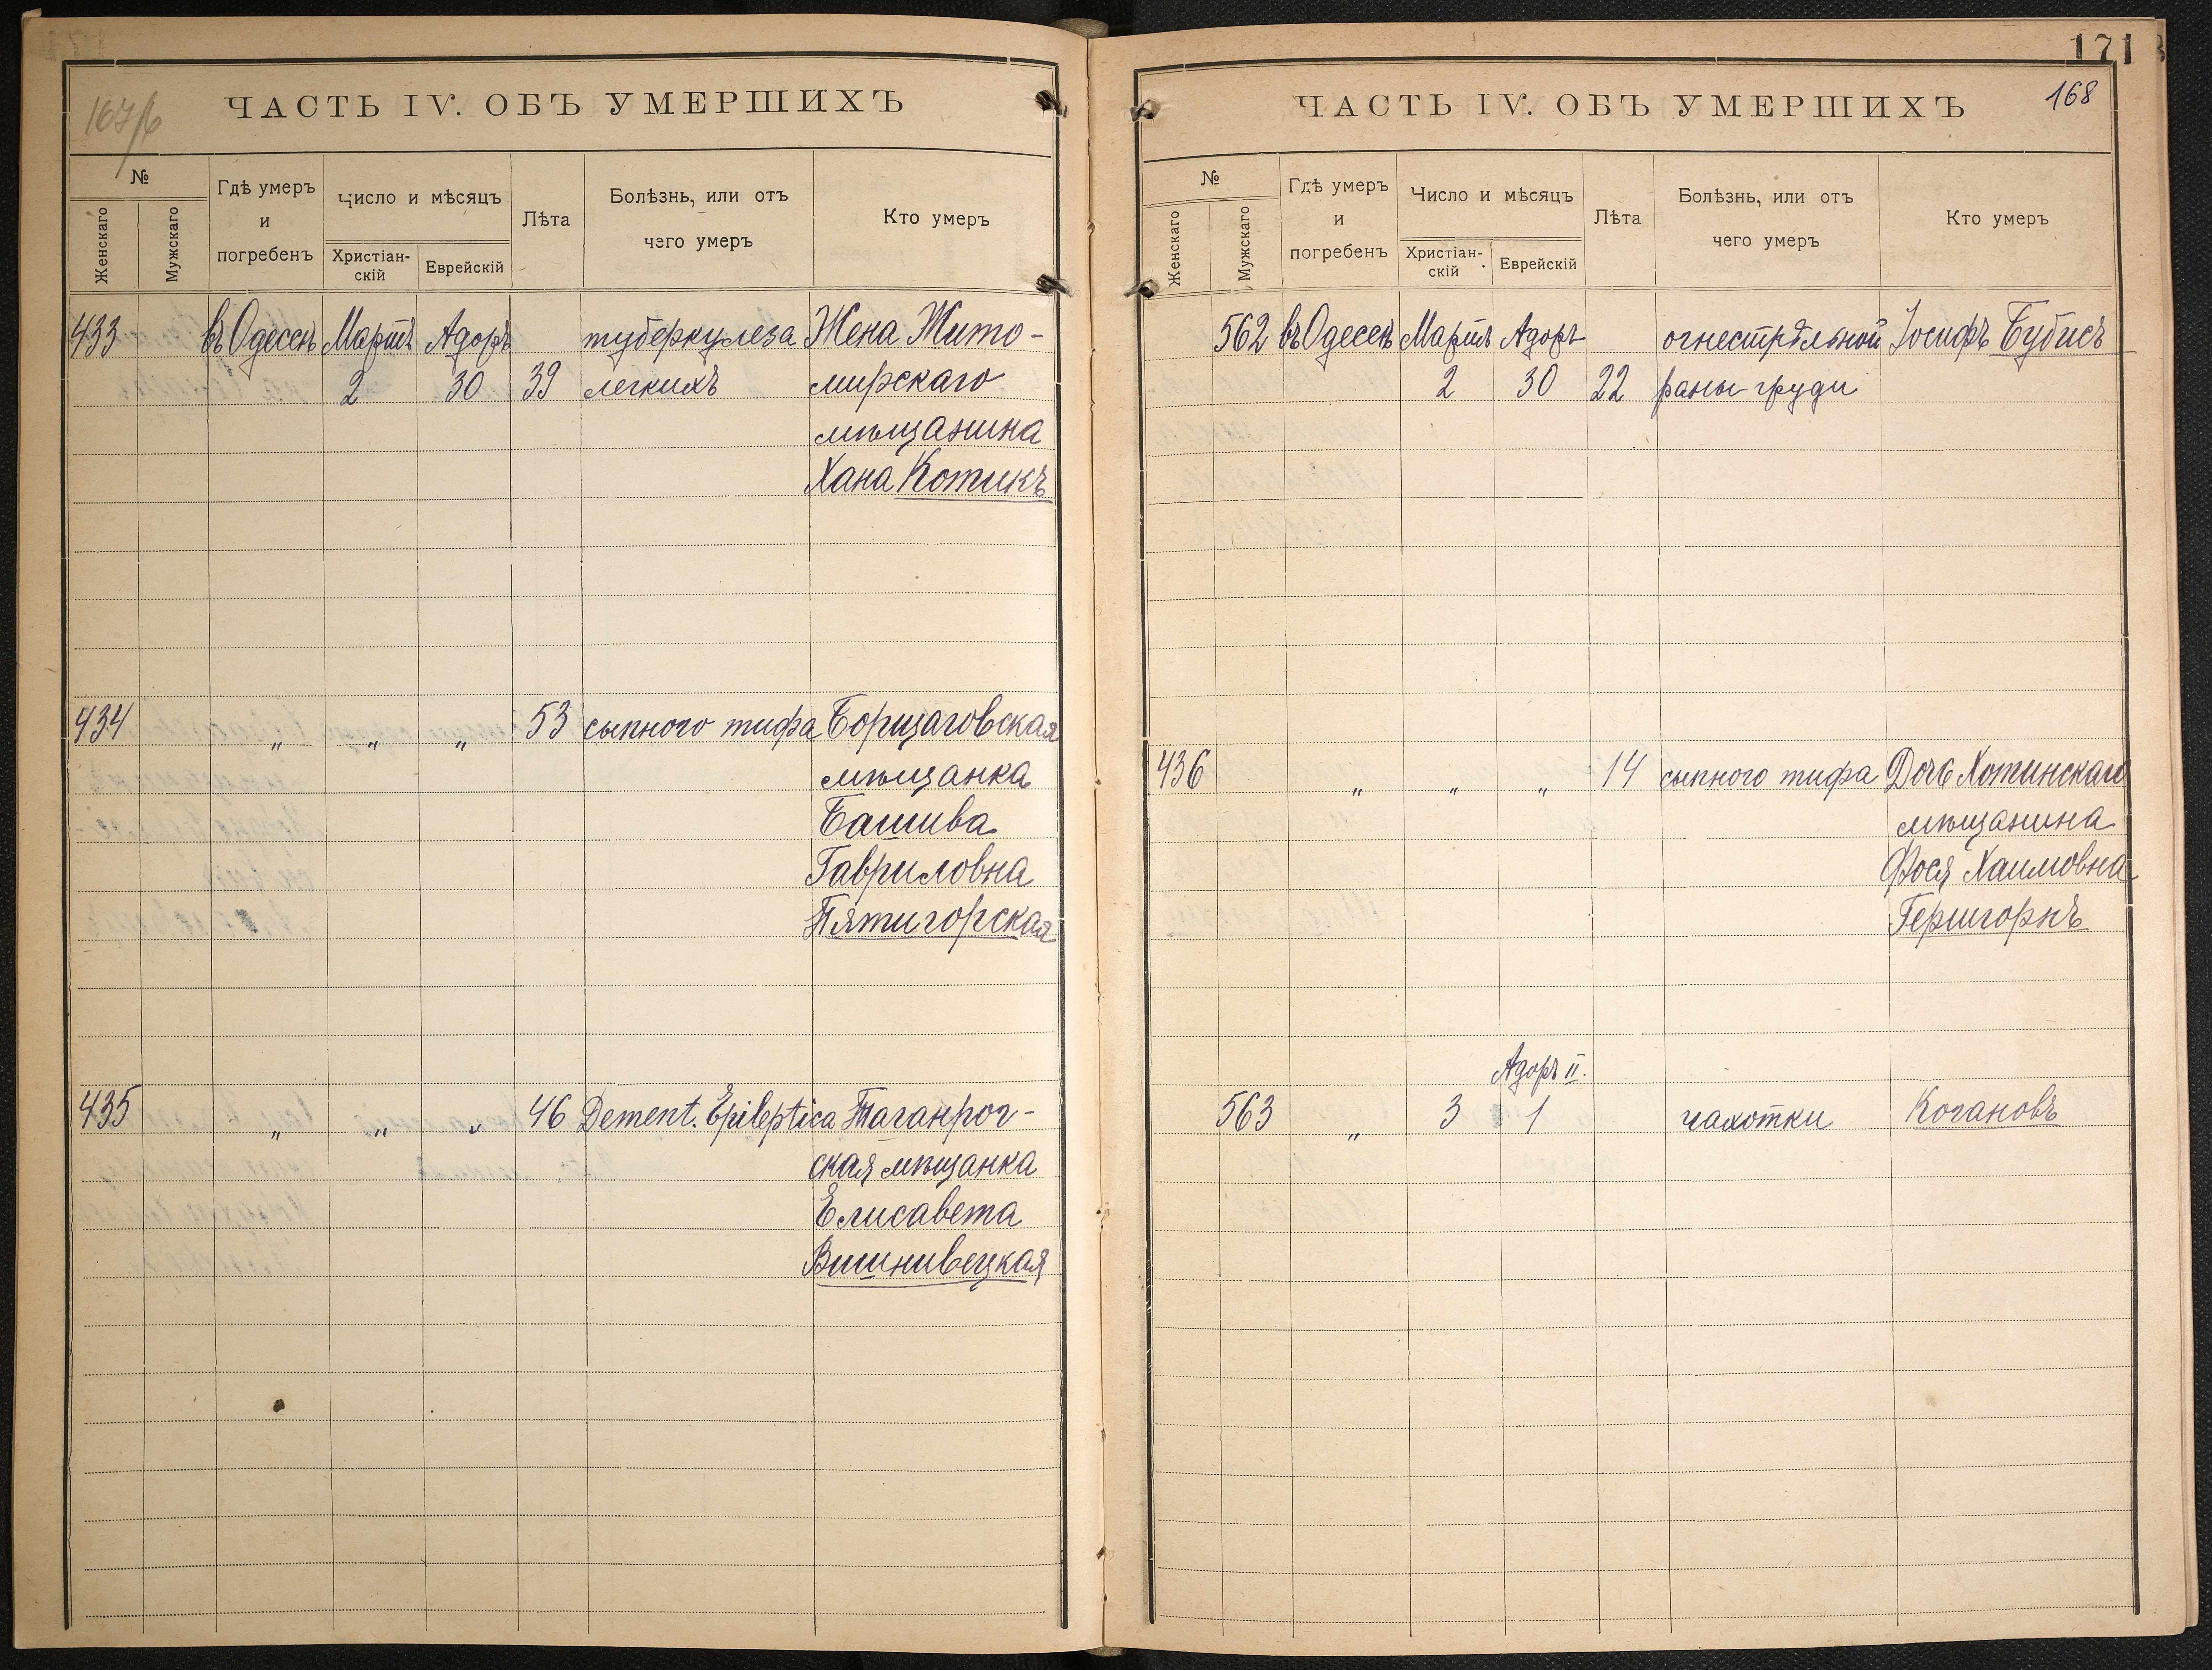 167/б
ЧАСТЬ IV. ОБЪ УМЕРШИХЪ
№
Женскаго
Мужскаго
Гдѣ умеръ
и
погребенъ
Число и мѣсяцъ
Христіан-
скій
Еврейскій
Лѣта
Болѣзнь, или отъ
чэго умеръ
Кто умеръ
433 въ Одессѣ Мартъ Адоръ туберкулеза Жена Жито-
2 30 39 легкихъ мирскаго
мѣщанина
Хана Котикъ
434 „ „ „ 53 сыпного тифа Борщаговская
мѣщанка
Башива
Гавриловна
Пятигорская
435 „ „ „ 46 Dement. Epileptica Таганрог-
ская мѣщанка
Елисавета
Вишнивецкая
171
168
ЧАСТЬ IV. ОБЪ УМЕРШИХЪ
№
Женскаго
Мужскаго
Гдѣ умеръ
и
погребенъ
Число и мѣсяцъ
Христіан-
скій
Еврейскій
Лѣта
Болѣзнь, или отъ
чего умеръ
Кто умеръ
562 въ Одессѣ Мартъ Адоръ огнестрѣльной Іосифъ Бубисъ
2 30 22 раны груди
436 „ „ „ 14 сыпного тифа Дочь Хотинскаго
мѣщанина
Фося Хаимовна
Гершгорнъ
Адоръ II.
563 „ 3 1 чахотки Когановъ